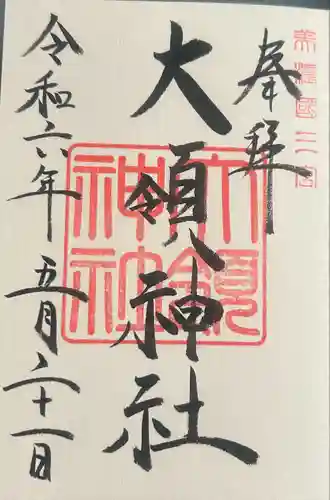 美濃國二宮
奉拝
大領神社
大領神社
令和六年五月二十一日